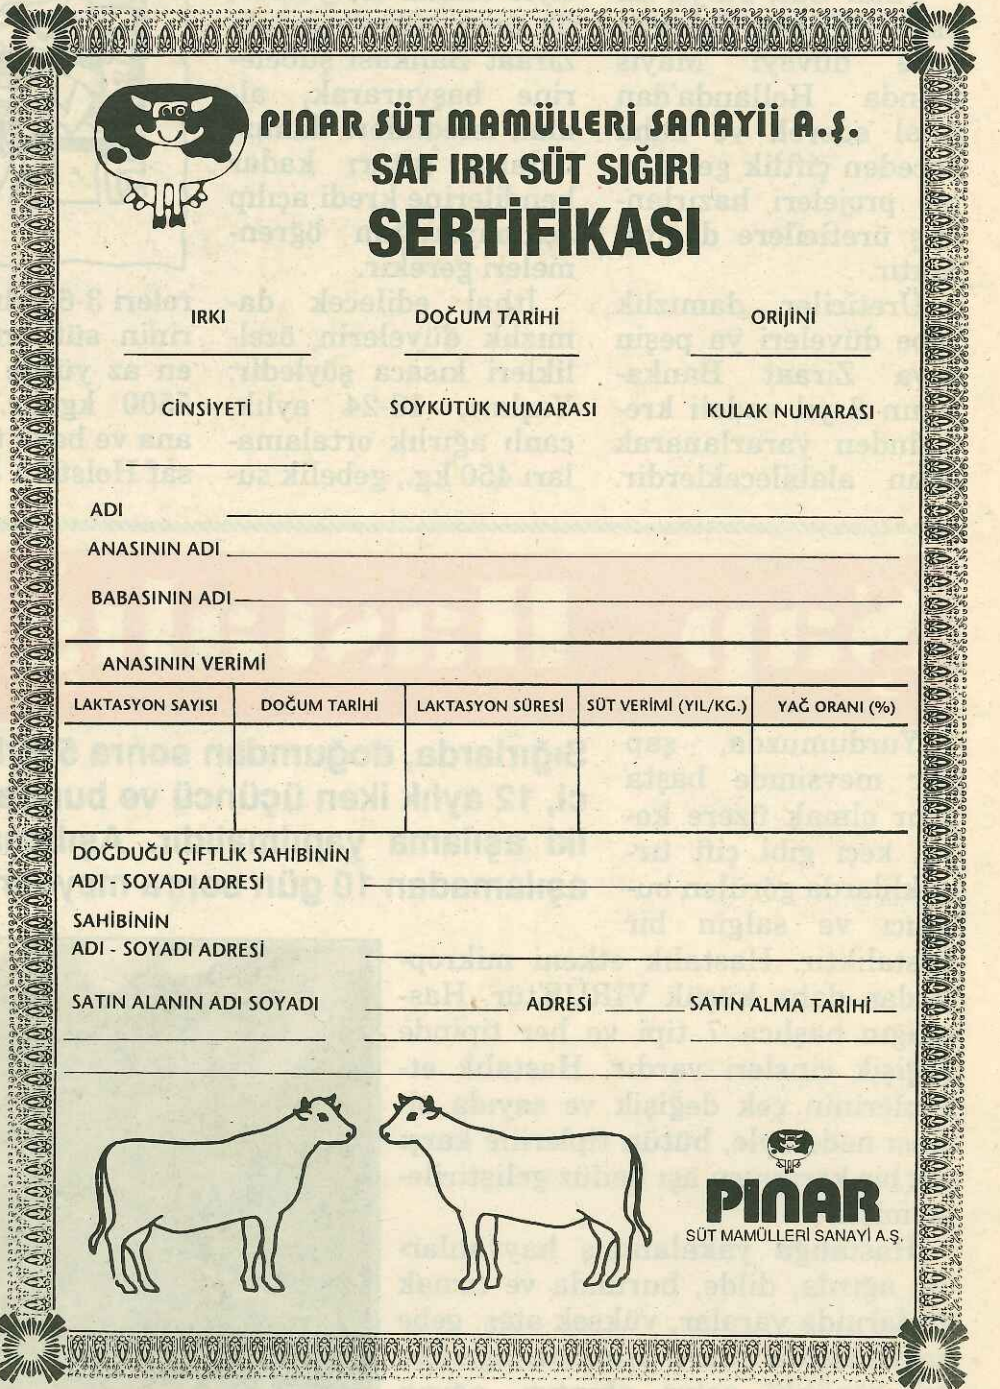 PINAR SÜT MAMÜLLERİ SANAYİİ A.Ş.
SAF IRK SÜT SIĞIRI
SERTİFİKASI
IRKI DOĞUM TARİHİ ORİJİNİ
CİNSİYETİ SOYKÜTÜK NUMARASI KULAK NUMARASI
ADI
ANASININ ADI
BABASININ ADI
ANASININ VERİMİ
LAKTASYON SAYISI DOĞUM TARİHİ LAKTASYON SÜRESİ SÜT VERİMİ (YIL/KG.) YAĞ ORANI (%)
DOĞDUĞU ÇİFTLİK SAHİBİNİN
ADI - SOYADI ADRESİ
SAHİBİNİN
ADI - SOYADI ADRESİ
SATIN ALANIN ADI SOYADI ADRESİ SATIN ALMA TARİHİ
PINAR
SÜT MAMÜLLERİ SANAYİ A.Ş.